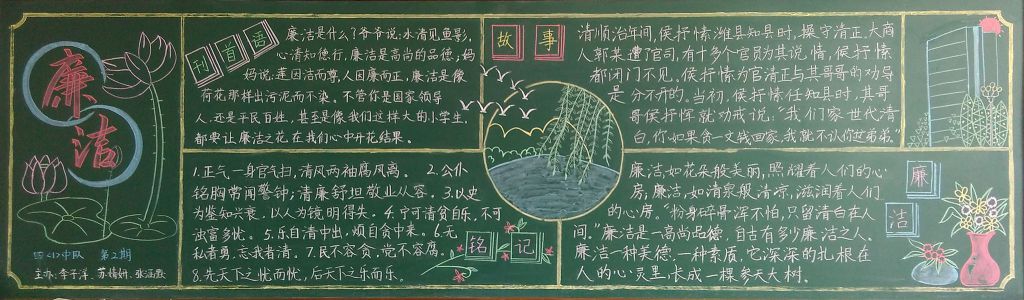 廉
洁
四〈1〉中队 第2期
主办:李子洋、苏倩妍、张涵甄
刊首语
廉洁是什么?爷爷说:水清见鱼影,
心清知德行,廉洁是高尚的品德;妈
妈说:莲因洁而尊,人因廉而正,廉洁是像
荷花那样出污泥而不染。不管你是国家领导
人,还是平民百姓,甚至是像我们这样大的小学生,
都要让廉洁之花在我们心中开花结果。
1.正气一身官气扫,清风两袖腐风离。 2.公仆
铭胸常闻警钟;清廉舒坦敬业从容。 3.以史
为鉴知兴衰,以人为镜明得失。 4.宁可清贫自乐,不可
浊富多忧。 5.乐自清中出,烦自贪中来。 6.无
私者勇,忘我者清。 7.民不容贪,党不容腐。
8.先天下之忧而忧,后天下之乐而乐。
铭记
故事
清顺治年间,侯抒愫潍县知县时,操守清正。大商
人郭某遭了官司,有十多个官员为其说情,侯抒愫
都闭门不见。侯抒愫为官清正与其哥哥的劝导
是分不开的。当初,侯抒愫任知县时,其哥
哥侯抒恽就劝戒说:“我们家世代清
白,你如果贪一文钱回家,我就不认你这弟弟。”
廉洁
廉洁如花朵般美丽,照耀着人们的心
房;廉洁,如清泉般清凉,滋润着人们
的心房。“粉身碎骨浑不怕,只留清白在人
间。”廉洁是一高尚品德,自古有多少廉洁之人。
廉洁一种美德,一种素质,它深深的扎根在
人的心灵里,长成一棵参天大树。